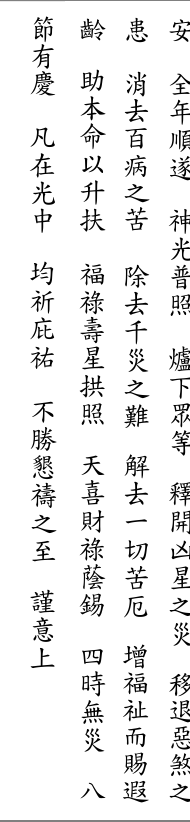 安　全年順遂　神光普照　爐下眾等　釋開凶星之災　移退惡煞之
患　消去百病之苦　除去千災之難　解去一切苦厄　增福祉而賜遐
齡　助本命以升扶　福祿壽星拱照　天喜財祿蔭錫　四時無災　八
節有慶　凡在光中　均祈庇祐　不勝懇禱之至　謹意上